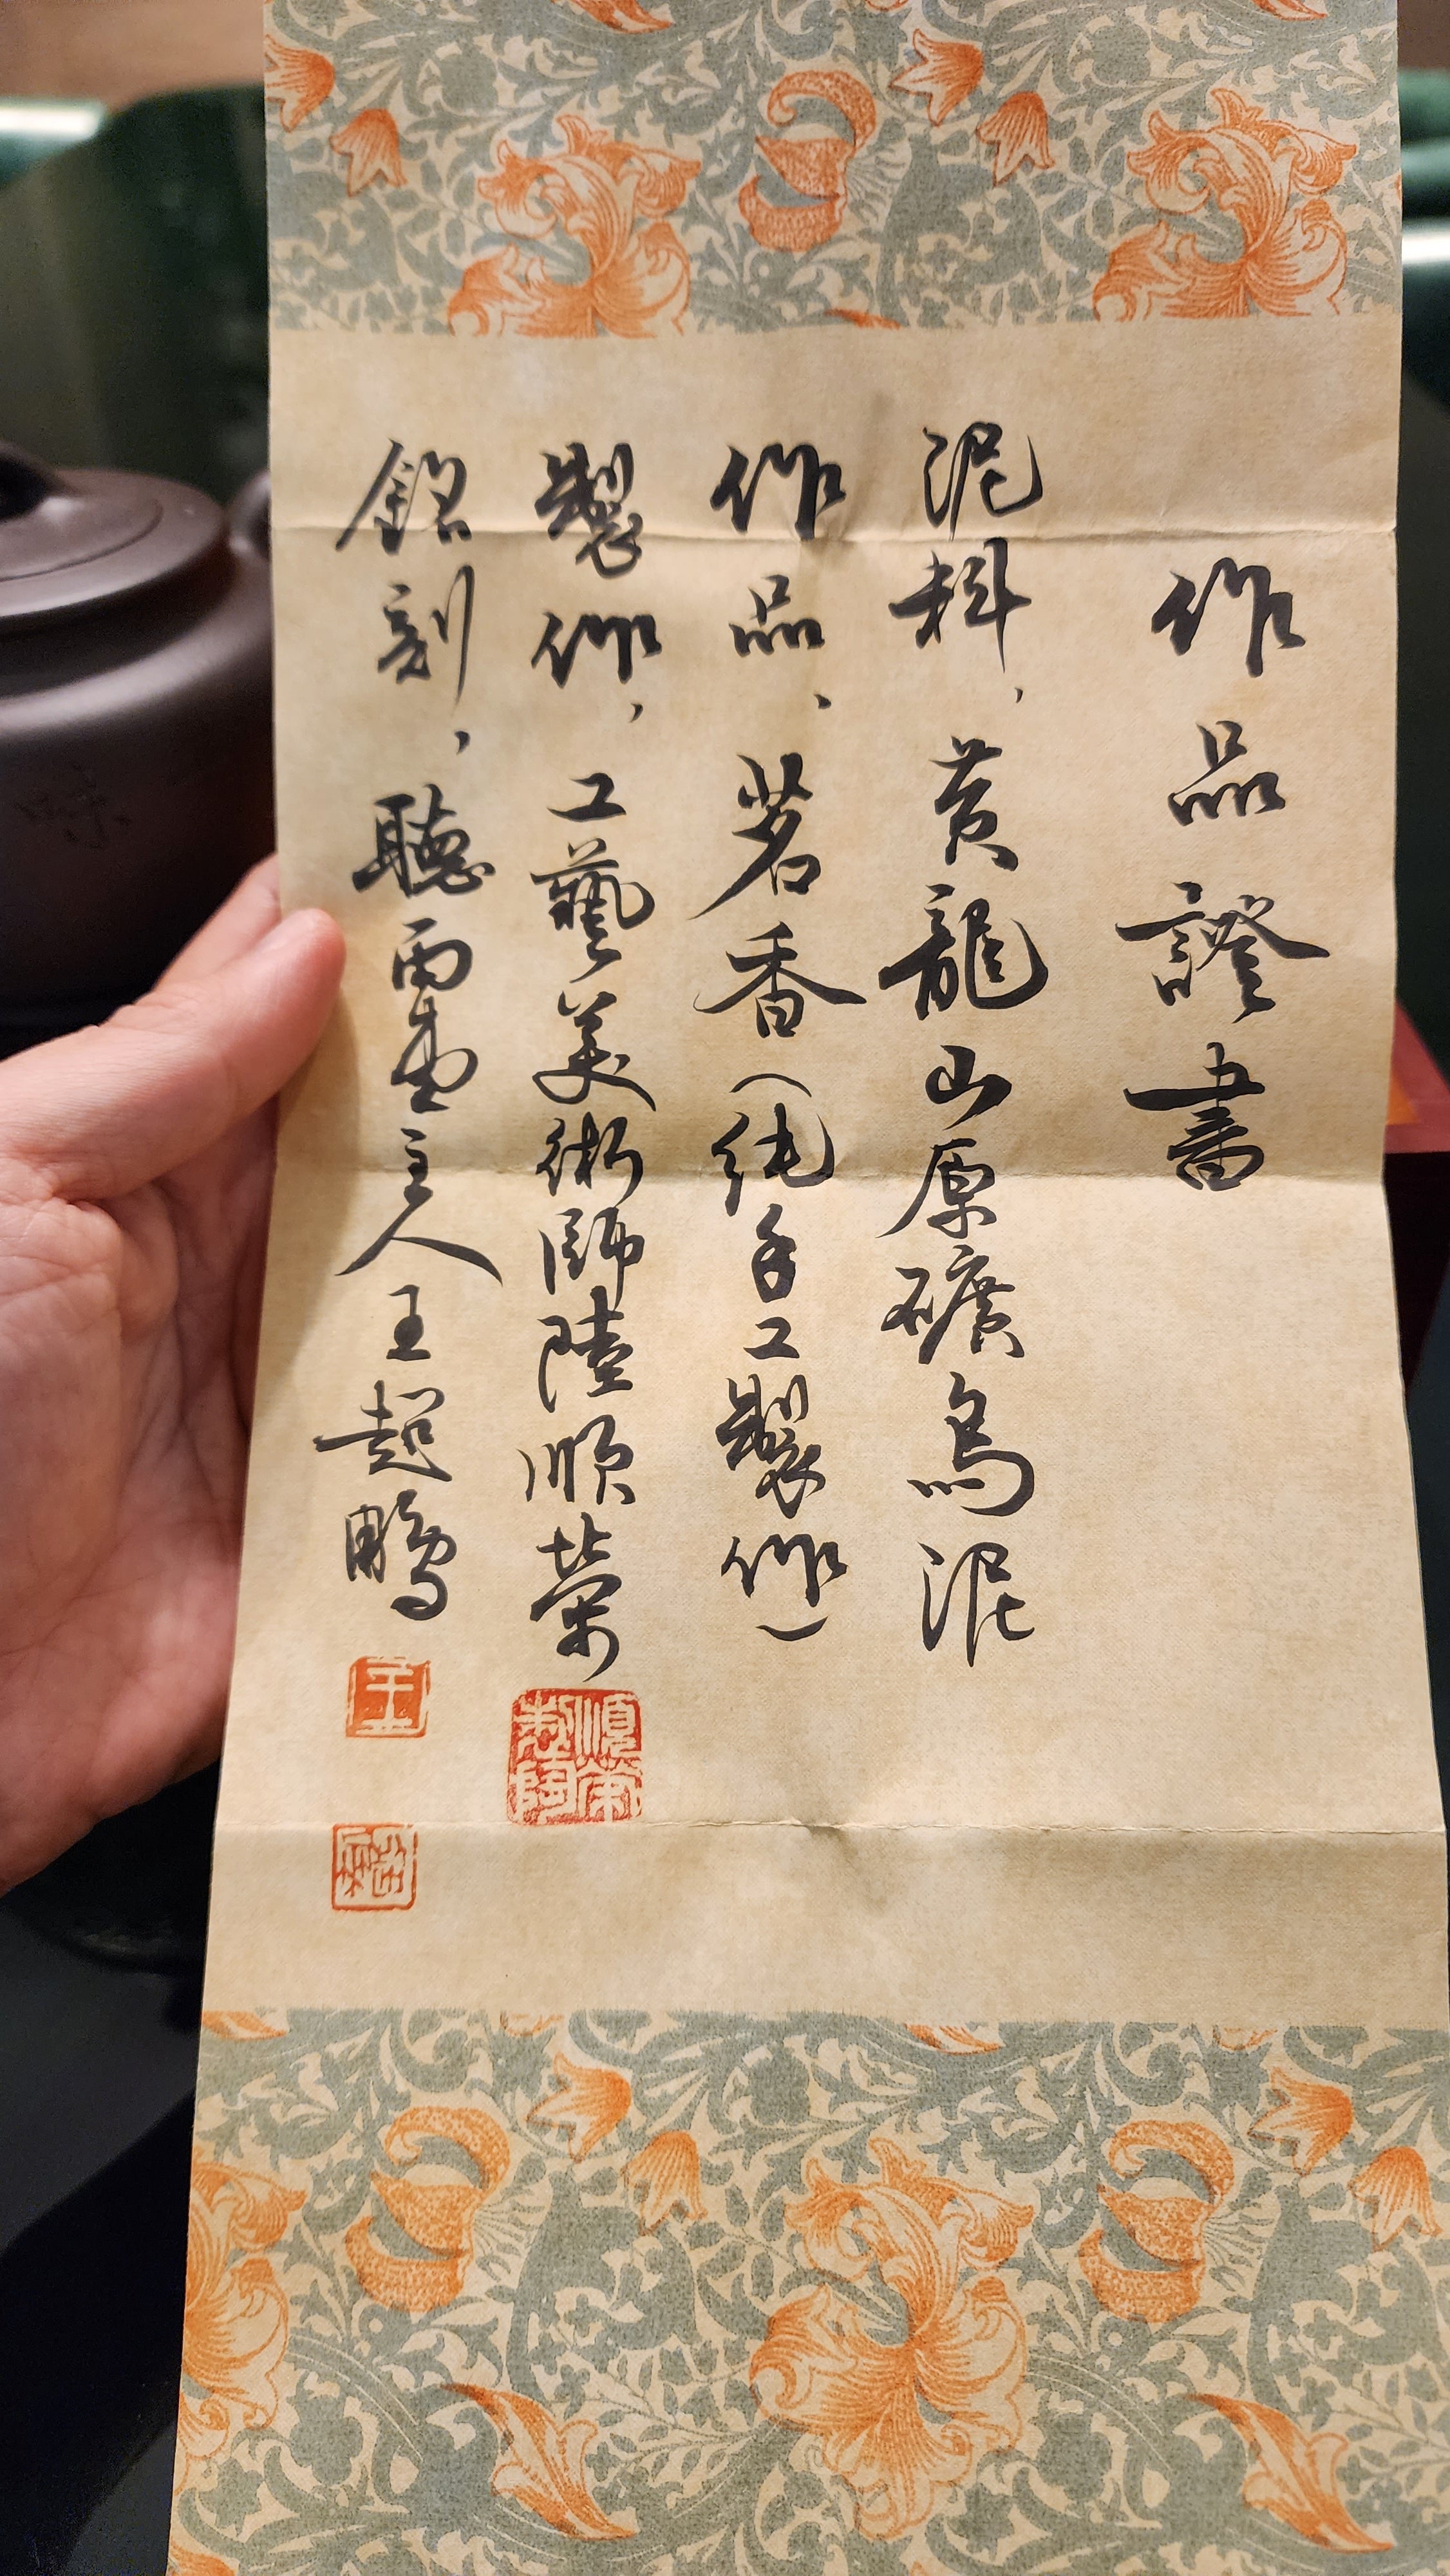 作品證書
泥料，黄龍山原礦烏泥
作品、茗香（純手工製作）
製作，工藝美術師陸順榮
銘刻，聽雨軒主人王超鵬
順榮制陶
王